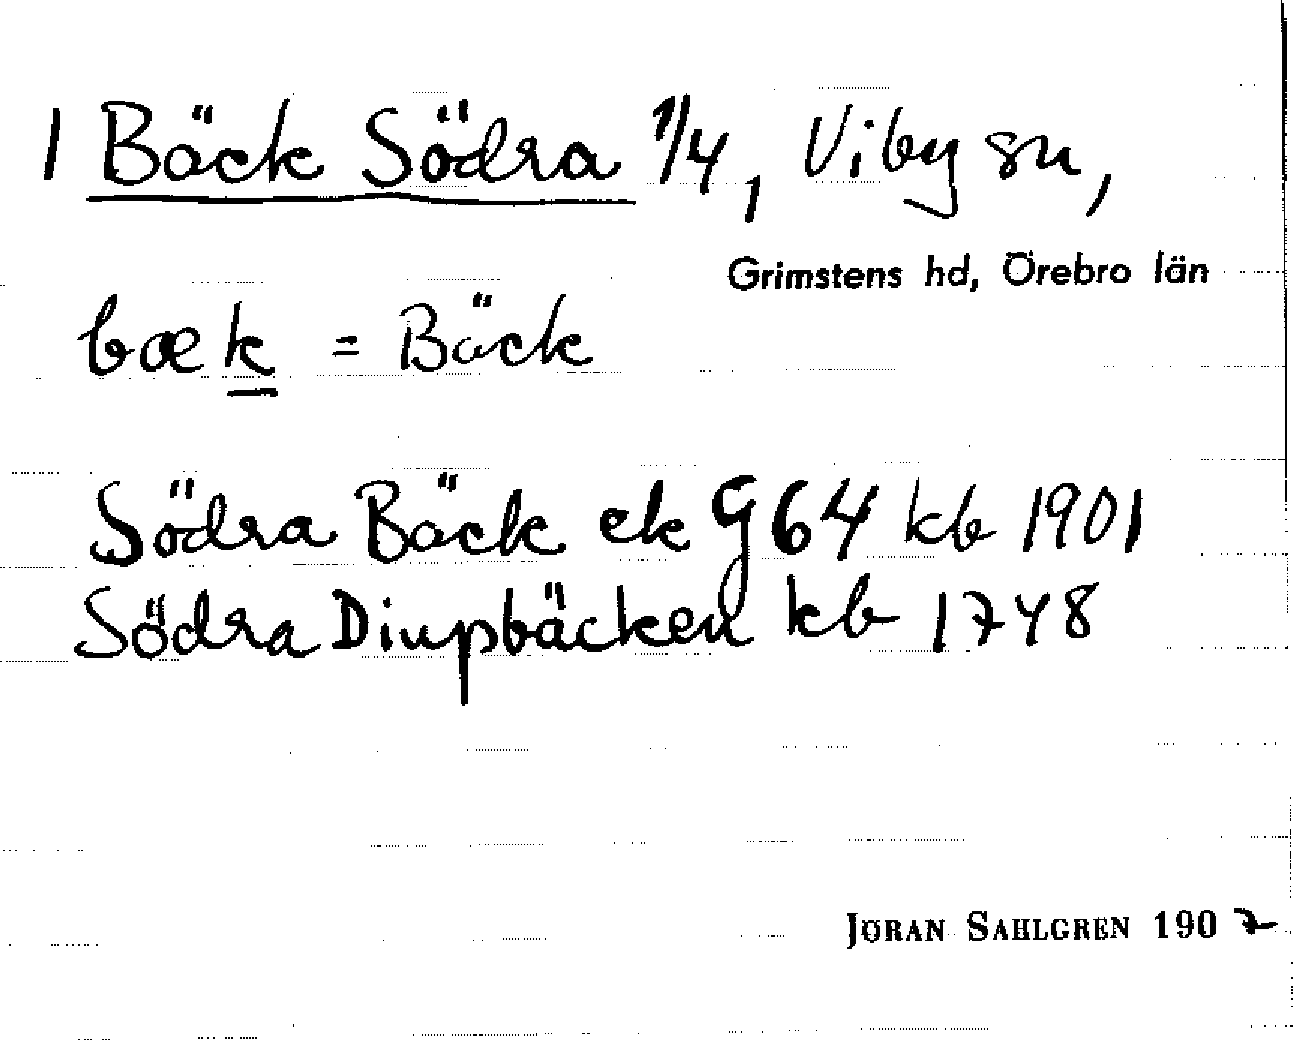 1 Bäck Södra 1/4, Viby sn,
Grimstens hd, Örebro län
bæk = Bäck
Södra Bäck ek G64 kb 1901
Södra Diupbäcken kb 1748
JÖRAN SAHLGREN 1907